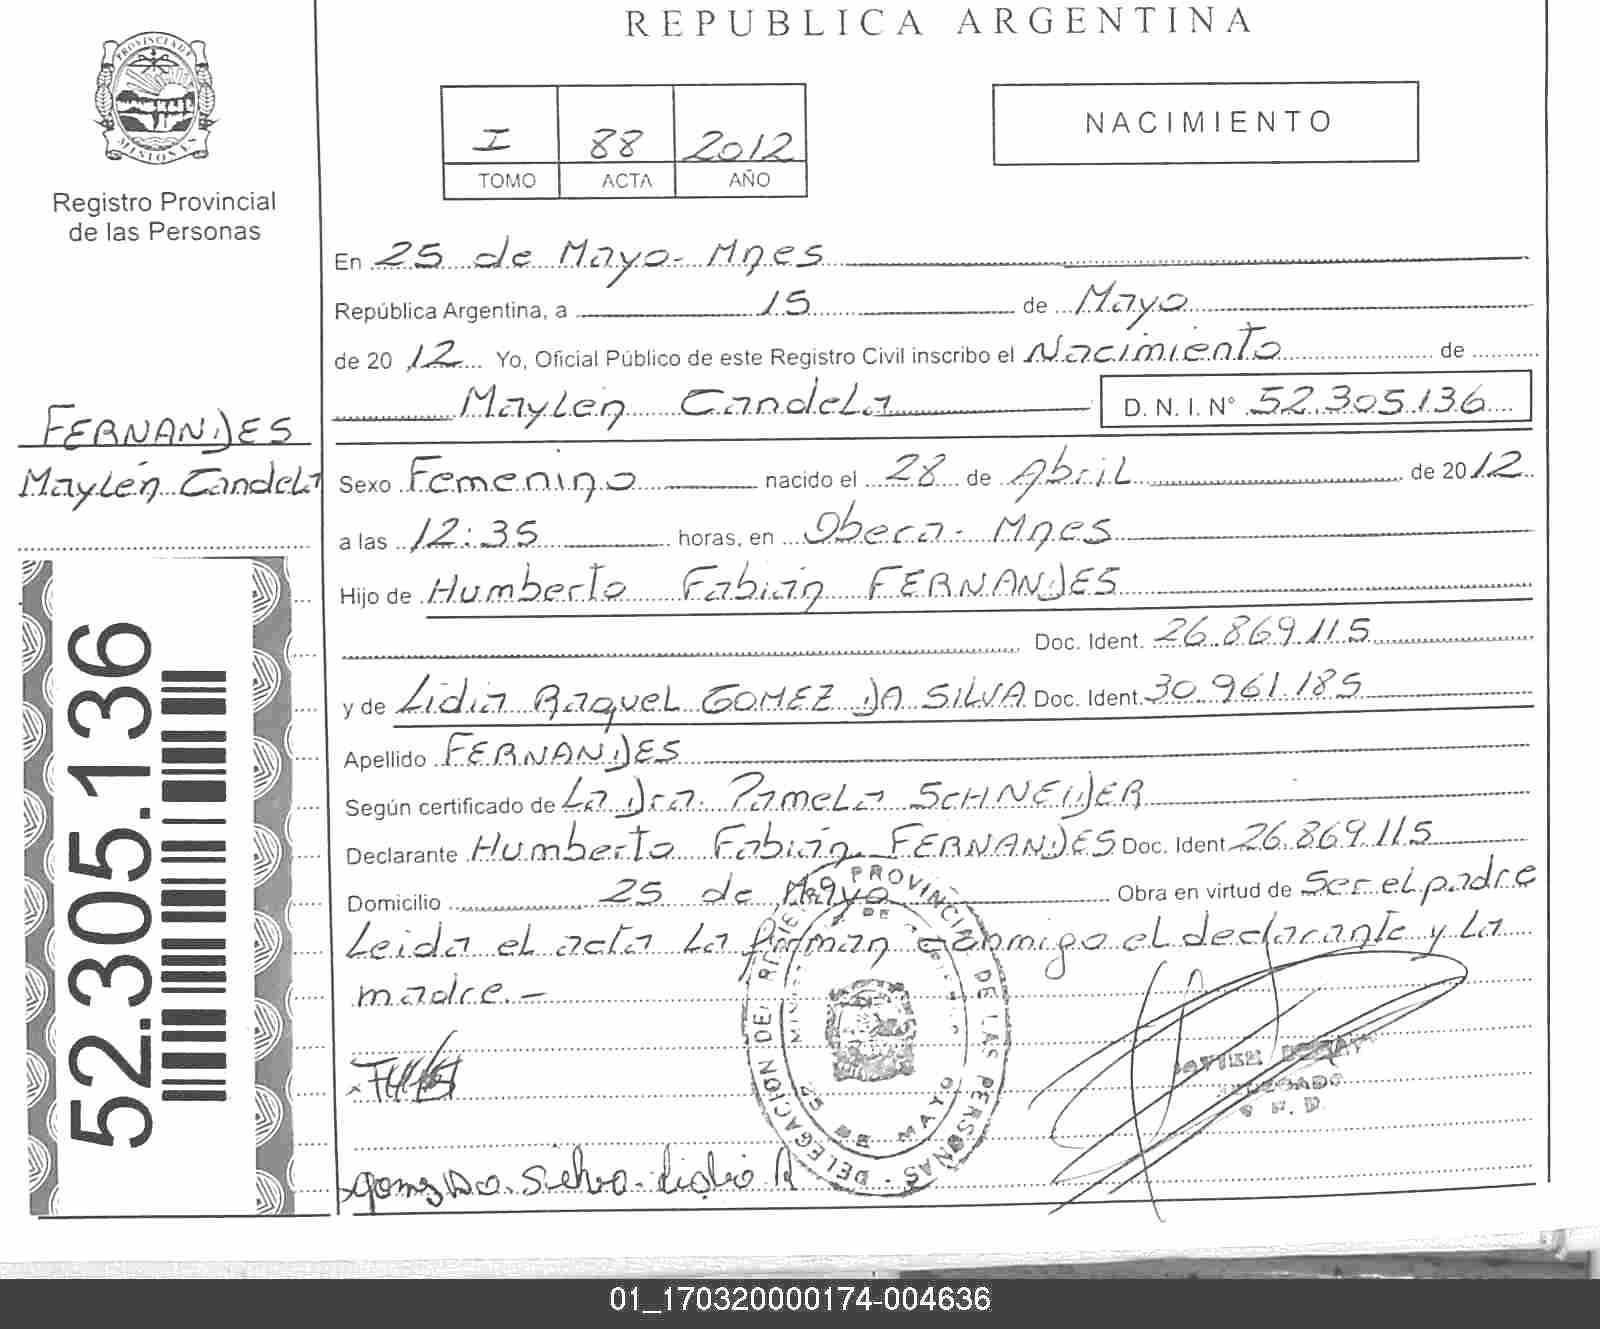 REPUBLICA ARGENTINA
PROVINCIA DE
MISIONES
Registro Provincial
de las Personas
I 88 2012
TOMO ACTA AÑO
NACIMIENTO
En 25 de Mayo - Mnes
República Argentina, a 15 de Mayo
de 20 12 Yo, Oficial Público de este Registro Civil inscribo el Nacimiento de
Maylén Candela D. N. I. N° 52.305.136
FERNANDES
Maylén Candela
Sexo Femenino nacido el 28 de Abril de 20 12
a las 12:35 horas, en Obera - Mnes
Hijo de Humberto Fabián FERNANDES
Doc. Ident. 26.869.115
y de Lidia Raquel GOMEZ DA SILVA Doc. Ident. 30.961.185
Apellido FERNANDES
Según certificado de La Dra. Pamela SCHNEIDER
Declarante Humberto Fabián FERNANDES Doc. Ident 26.869.115
Domicilio 25 de Mayo Obra en virtud de Ser el padre
Leida el acta la firman conmigo el declarante y la
madre. -
52.305.136
DELEGACION DEL REGISTRO PROVINCIAL DE LAS PERSONAS
25 DE MAYO
DELEGADO
Gomez Da Silva Lidia R
01_170320000174-004636